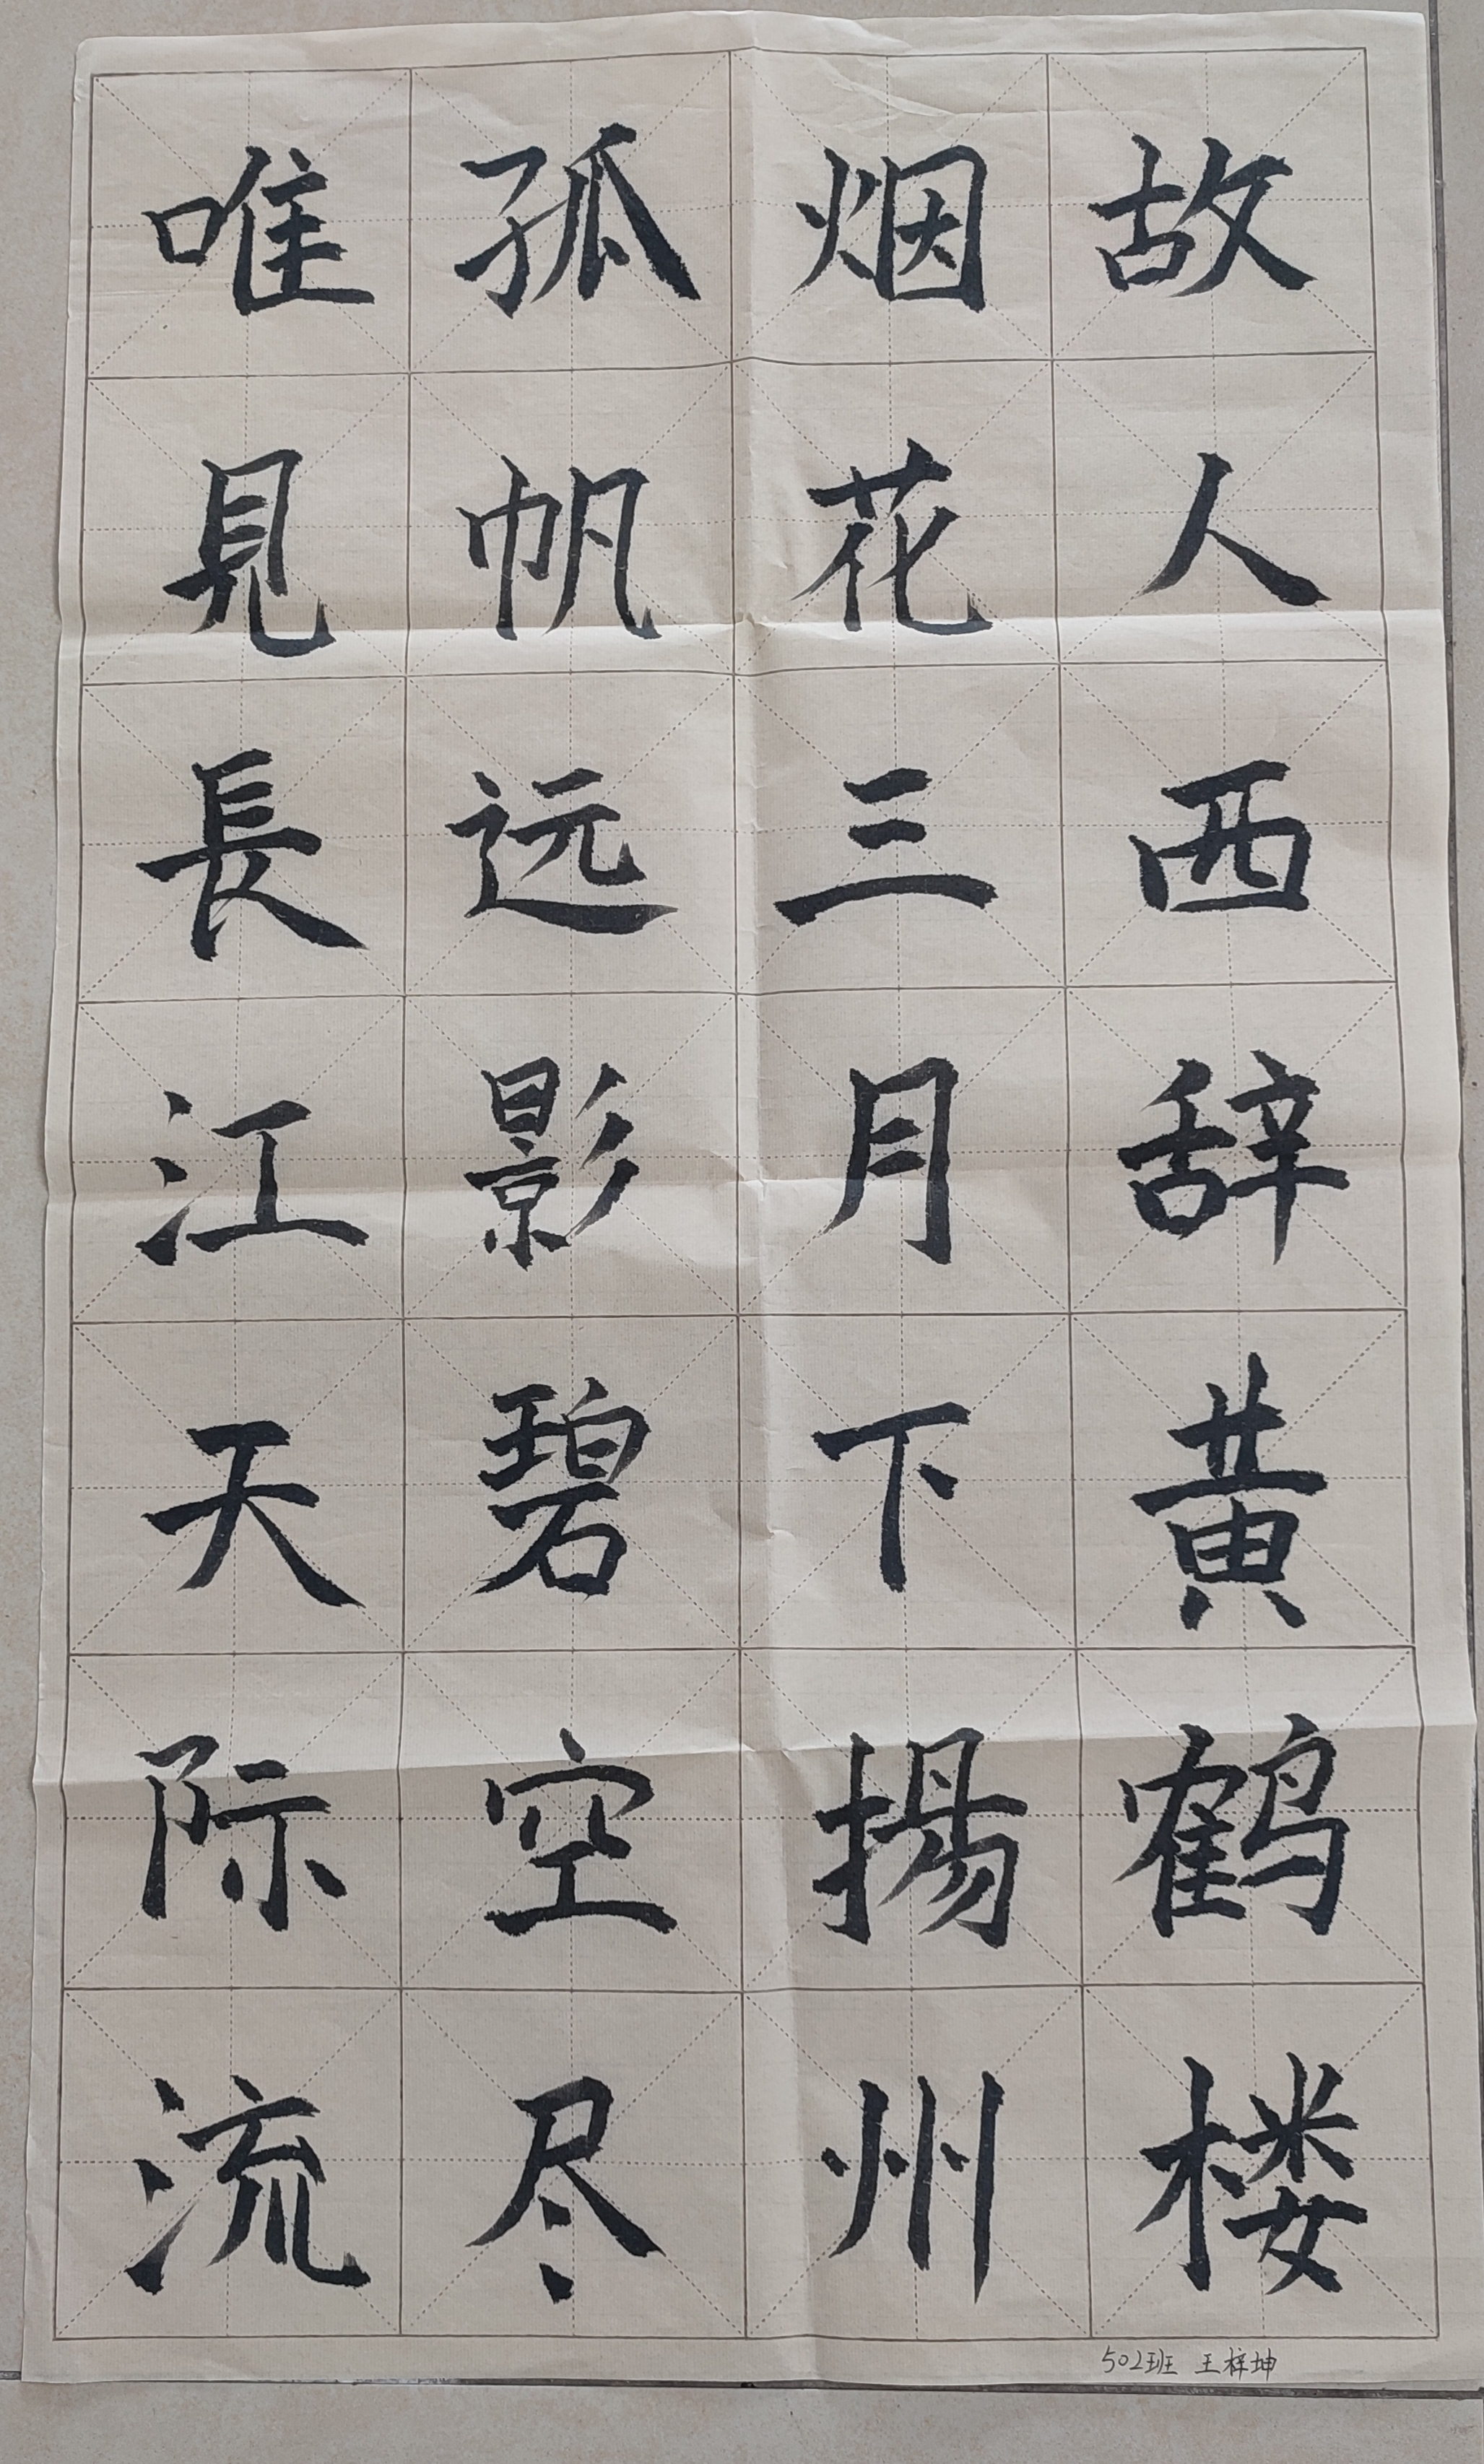 故人西辞黄鹤楼
烟花三月下揚州
孤帆远影碧空尽
唯見長江天际流
502班 王梓坤